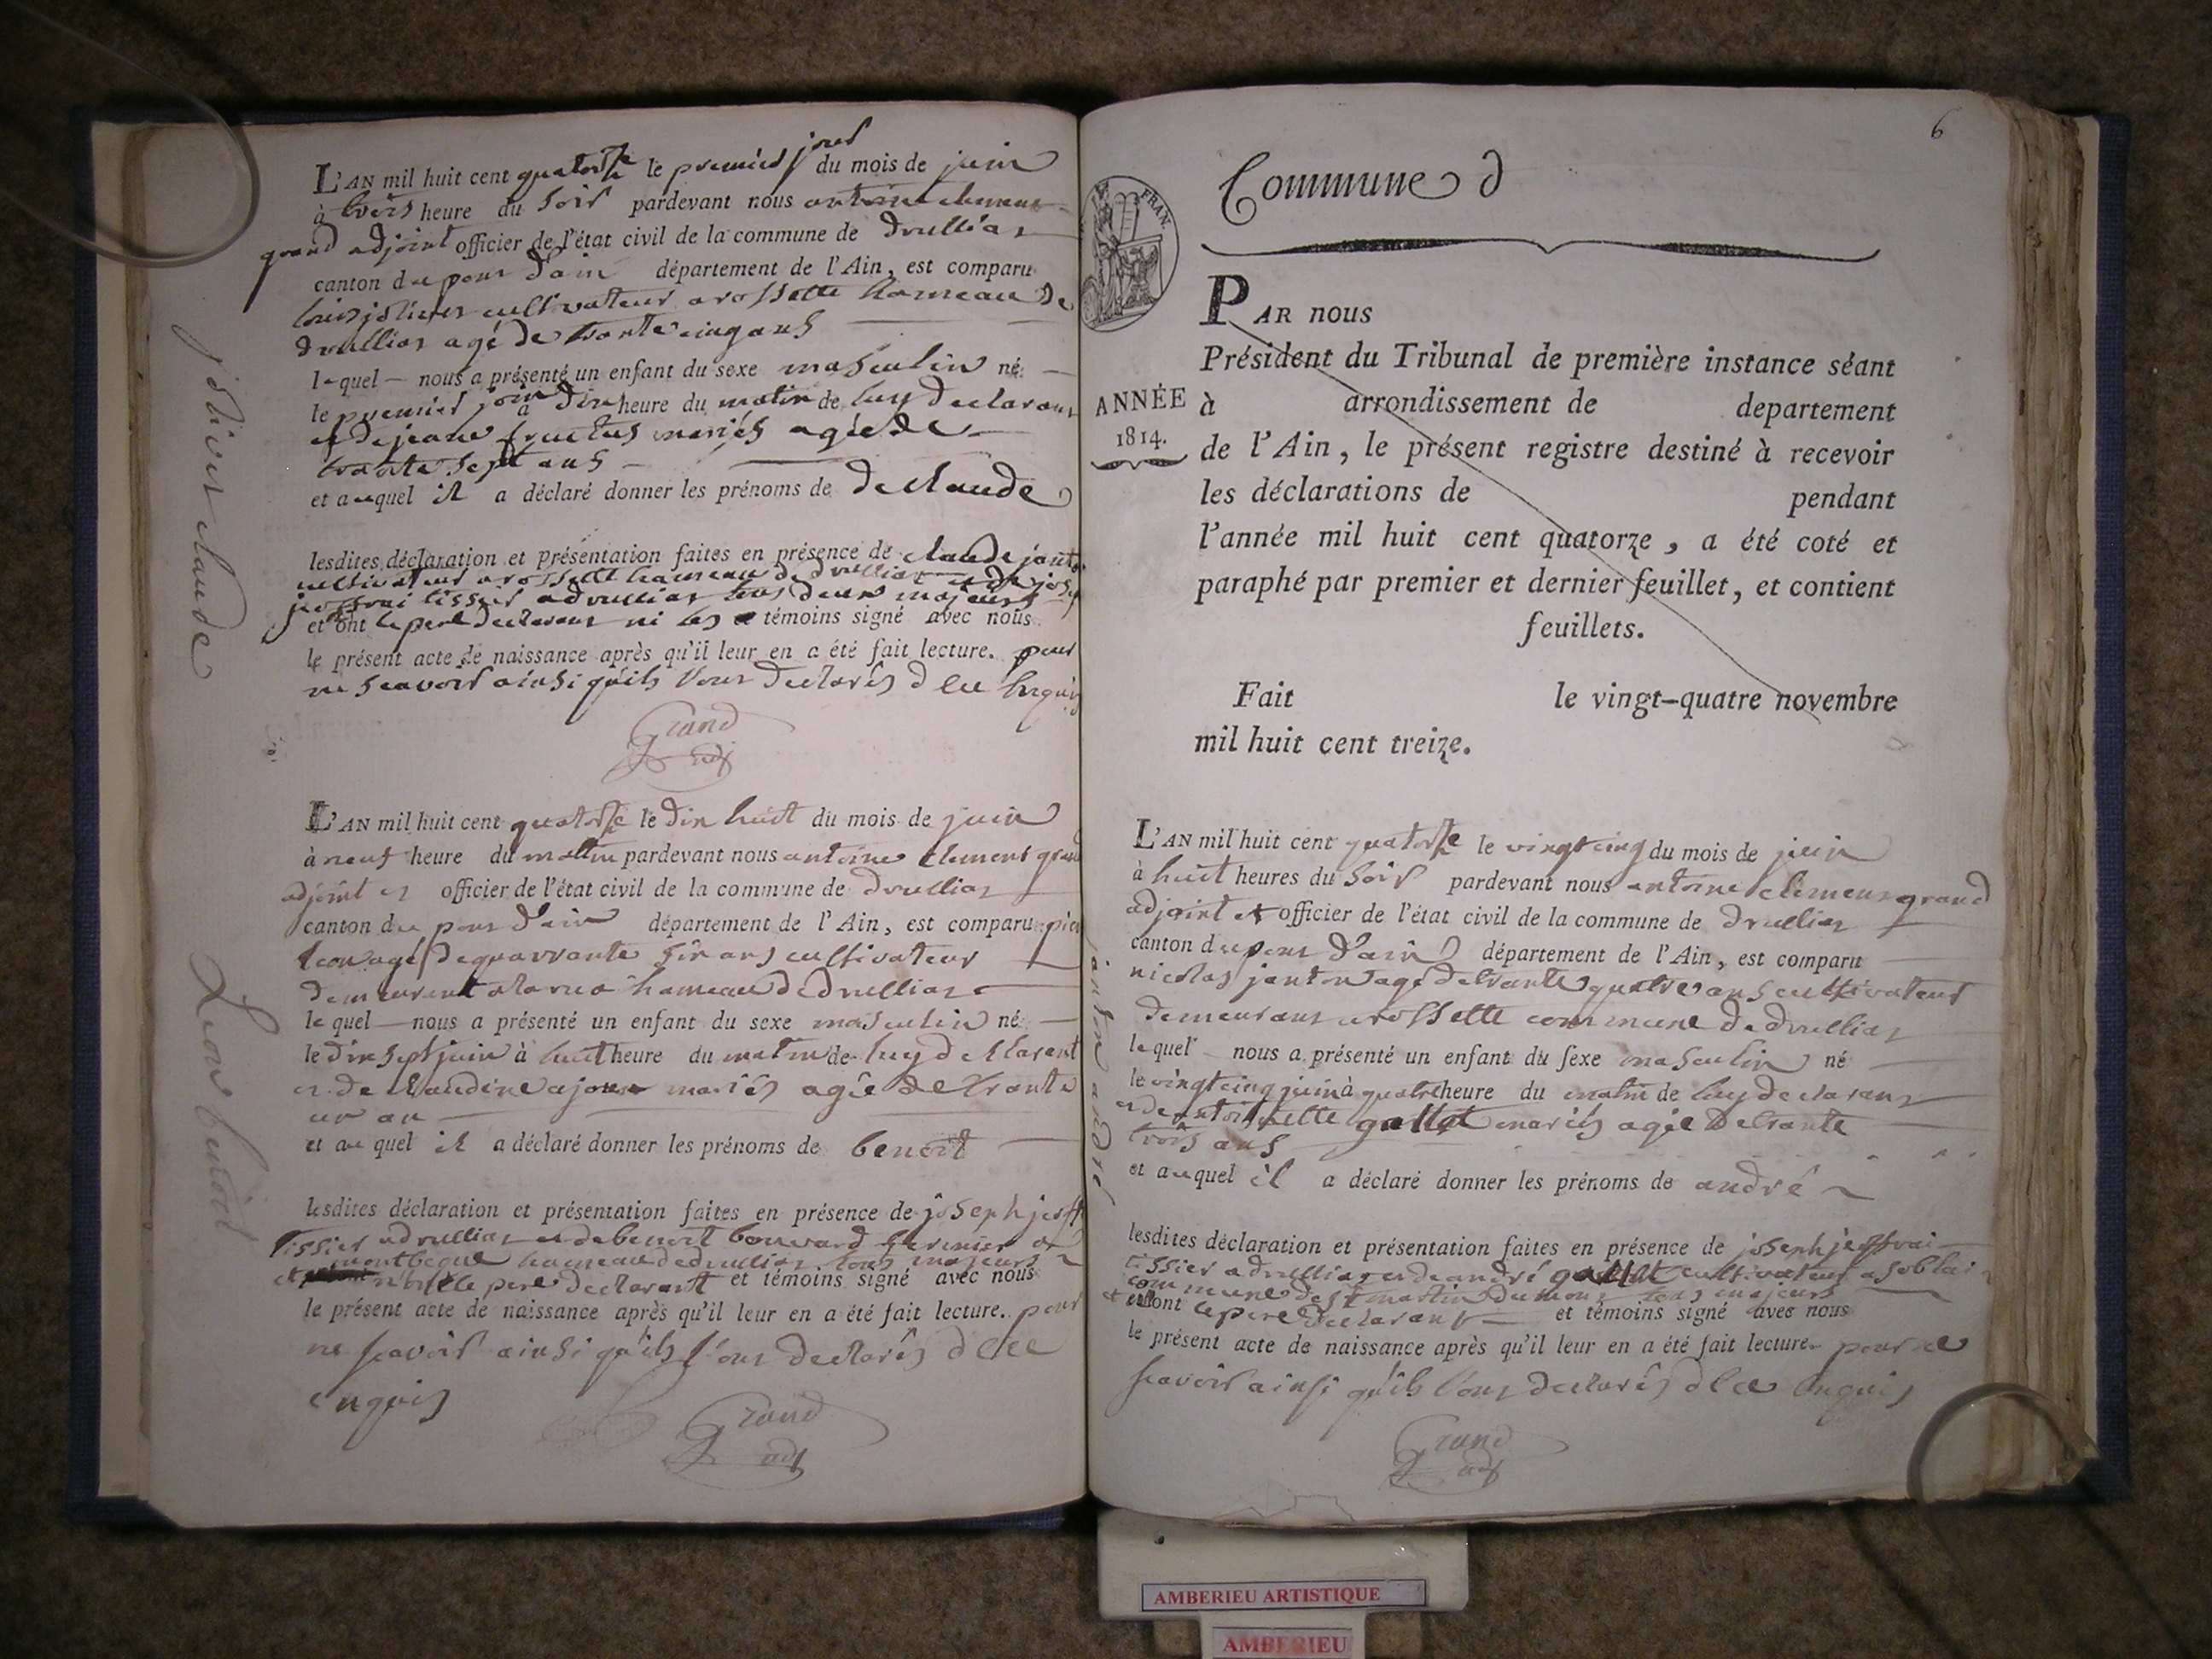 L'AN mil huit cent quatorze le premier jour du mois de juin
à trois heure du soir pardevant nous antoine clement
grand adjoint officier de l'état civil de la commune de druillias
canton du pont d'ain département de l'Ain, est comparu
louis jolivet cultivateur a rossette hameau de
druillias agé de trante cinq ans
lequel nous a présenté un enfant du sexe masculin né
le premier juin à dix heure du matin de luy declarant
et de jeanne fructus mariés agée de
trante sept ans
et auquel il a déclaré donner les prénoms de de claude
lesdites déclaration et présentation faites en présence de claude janton
cultivateur a rossette hameau de druillias et de joseph
jeoffrai tissier a druillias tous deux majeurs
et ont le pere declarant ni les témoins signé avec nous
le présent acte de naissance après qu'il leur en a été fait lecture. pour
ne scavoir ainsi qu'ils l'ont declarés de ce enquis
Grand
adj
jolivet claude
L'AN mil huit cent quatorze le dix huit du mois de juin
à neuf heure du matin pardevant nous antoine clement grand
adjoint et officier de l'état civil de la commune de druillias
canton du pont d'ain département de l'Ain, est comparu pierre
Leon agé de quarrante six ans cultivateur
demeurent a hameau de druillias
lequel nous a présenté un enfant du sexe masculin né
le dix sept juin à huit heure du matin de luy declarant
et de claudine mariés agée de trante
un an
et auquel il a déclaré donner les prénoms de benoit
lesdites déclaration et présentation faites en présence de joseph jeoff
tissier a druillias et de benoit bouvard
hameau de druillias tous majeurs
et le pere declarant et témoins signé avec nous
le présent acte de naissance après qu'il leur en a été fait lecture. pour
ne scavoir ainsi qu'ils l'ont declarés de ce
enquis
Grand
adj
Leon benoit
6
Commune d
FRAN
ANNÉE
1814.
PAR nous
Président du Tribunal de première instance séant
à arrondissement de departement
de l'Ain, le présent registre destiné à recevoir
les déclarations de pendant
l'année mil huit cent quatorze, a été coté et
paraphé par premier et dernier feuillet, et contient
feuillets.
Fait le vingt-quatre novembre
mil huit cent treize.
L'AN mil huit cent quatorze le vingt cinq du mois de juin
à huit heures du soir pardevant nous antoine clement grand
adjoint et officier de l'état civil de la commune de druillias
canton du pont d'ain département de l'Ain, est comparu
nicolas janton agé de trante quatre ans cultivateur
demeurant a rossette commune de druillias
lequel nous a présenté un enfant du sexe masculin né
le vingt cinq juin à quatre heure du matin de luy declarant
et de antoinette gallat mariés agée de trante
trois ans
et auquel il a déclaré donner les prénoms de andré
lesdites déclaration et présentation faites en présence de joseph jeoffrai
tissier a druillias et de andré gallat cultivateur a soblai
commune de st martin du mont tous majeurs
et ont le pere declarant et témoins signé avec nous
le présent acte de naissance après qu'il leur en a été fait lecture. pour ne
scavoir ainsi qu'ils l'ont declarés de ce enquis
Grand
adj
janton andré
AMBERIEU ARTISTIQUE
AMBERIEU